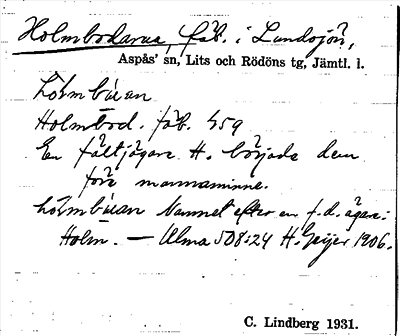 Holmbodarna, fäb. i Landsjön,
Aspås' sn, Lits och Rödöns tg, Jämtl. l.
Holmbod. fäb. 459
En fältjägare H. började dem
före mannaminne.
Namnet efter en f.d. ägare:
Holm. — Alma 508:24 H. Geijer 1906.
C. Lindberg 1931.